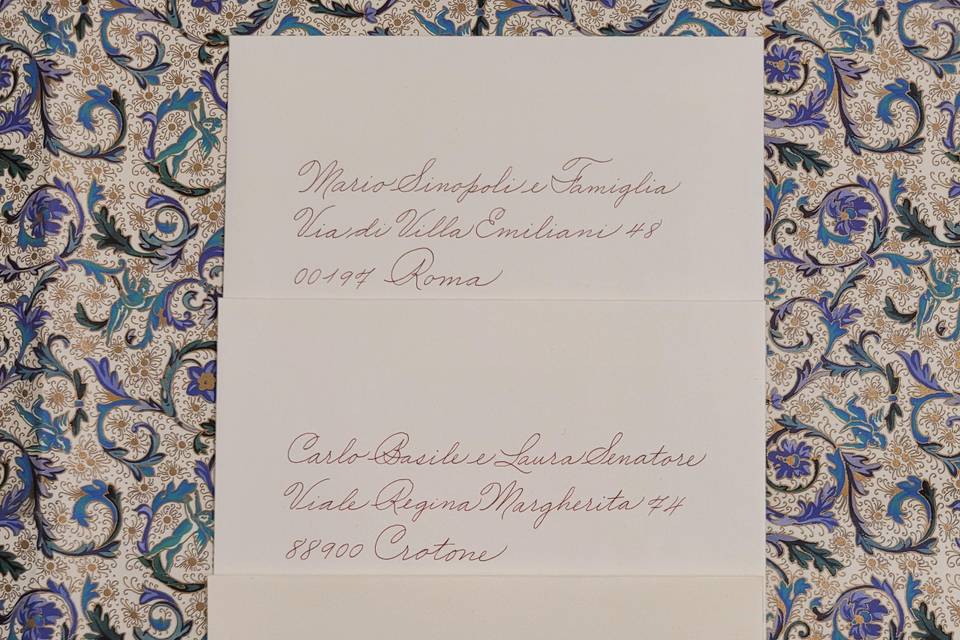 Mario Sinopoli e Famiglia
Via di Villa Emiliani 48
00197 Roma
Carlo Basile e Laura Senatore
Viale Regina Margherita 74
88900 Crotone